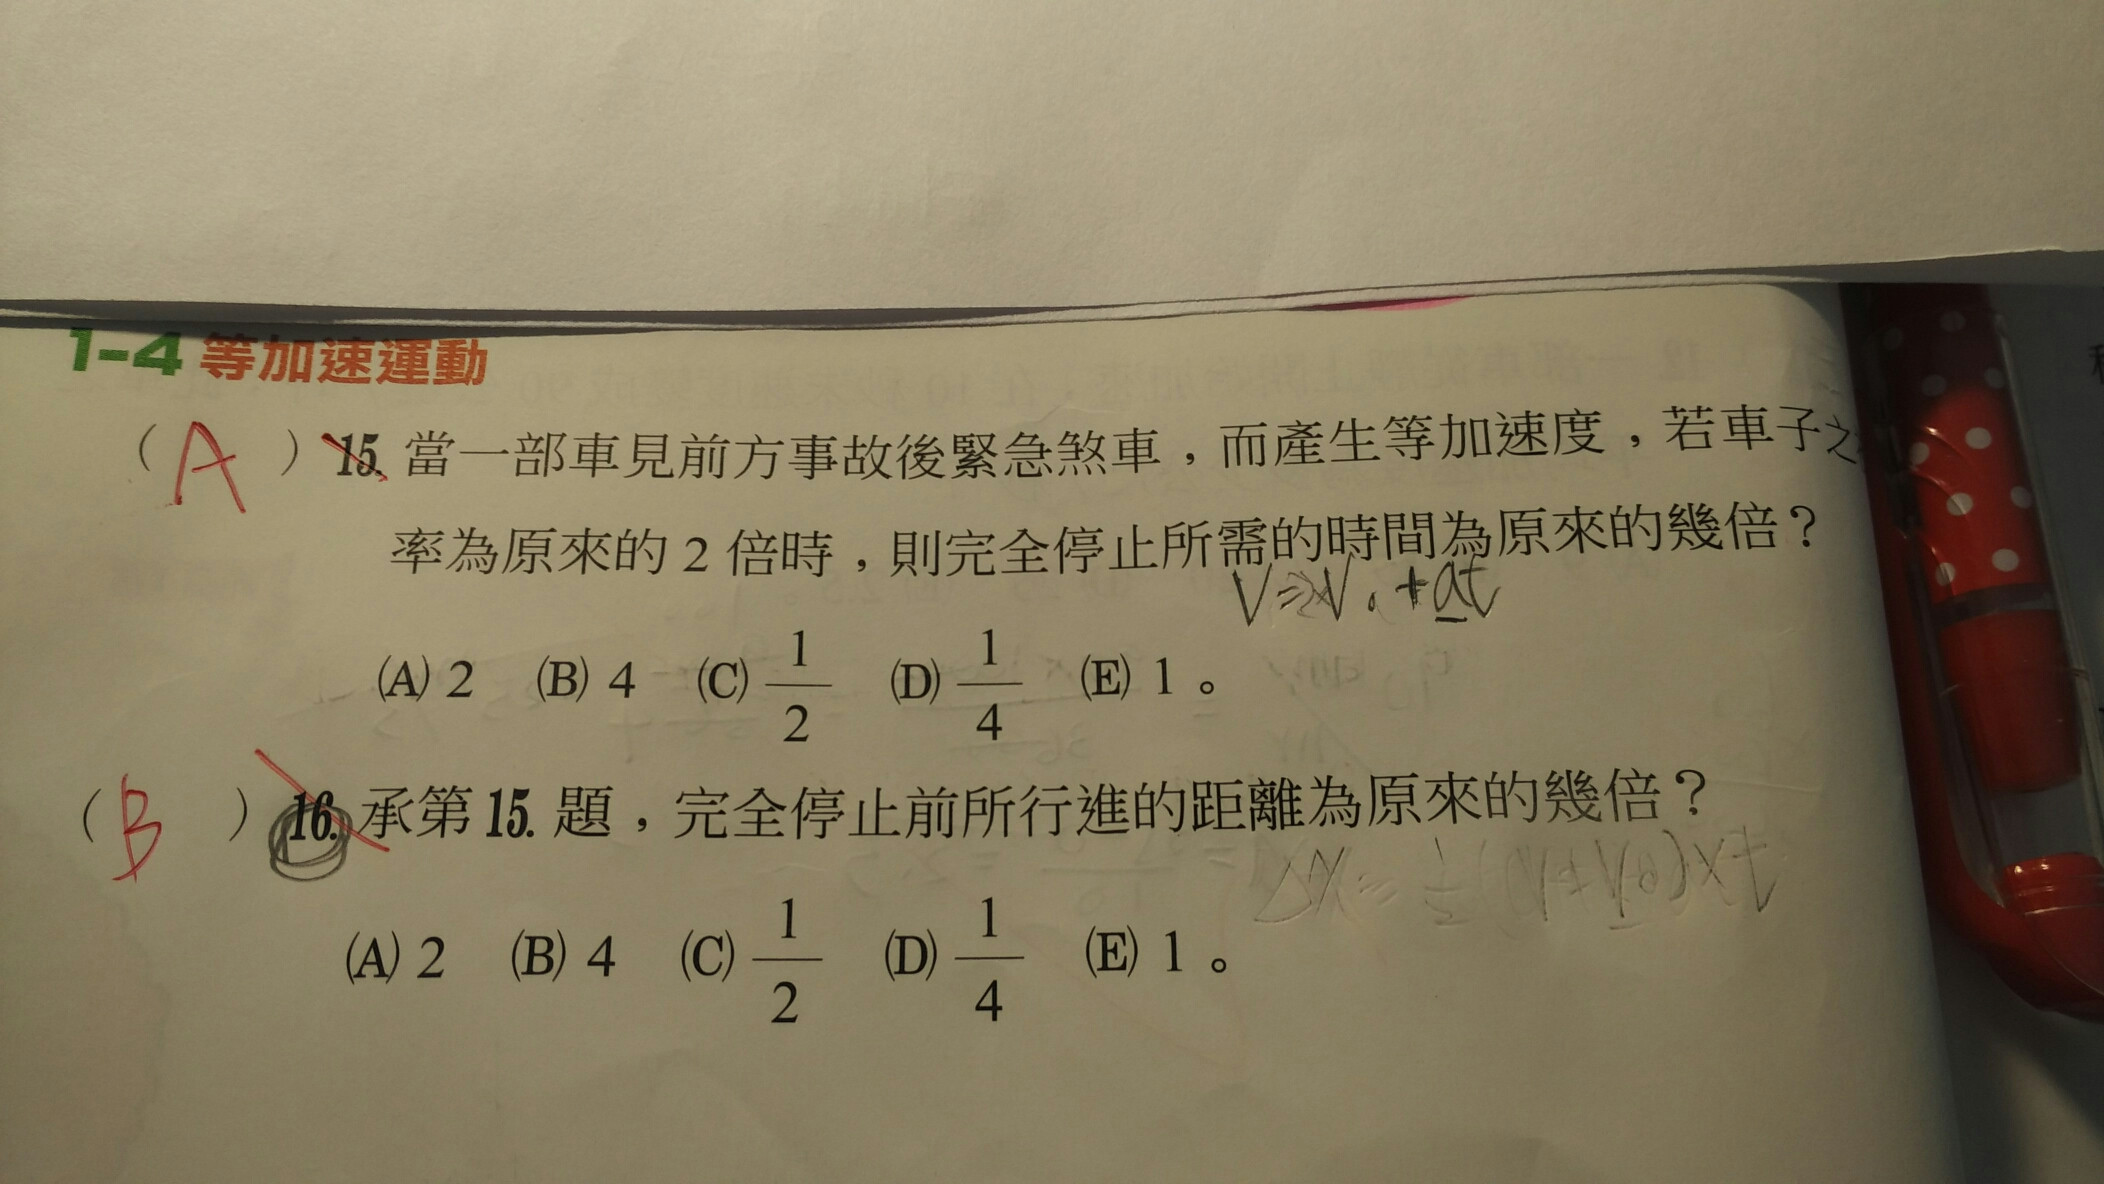 1-4 等加速運動
( A ) 15. 當一部車見前方事故後緊急煞車，而產生等加速度，若車子之
率為原來的 2 倍時，則完全停止所需的時間為原來的幾倍？
(A) 2 (B) 4 (C) 1/2 (D) 1/4 (E) 1。
( B ) 16. 承第 15. 題，完全停止前所行進的距離為原來的幾倍？
(A) 2 (B) 4 (C) 1/2 (D) 1/4 (E) 1。